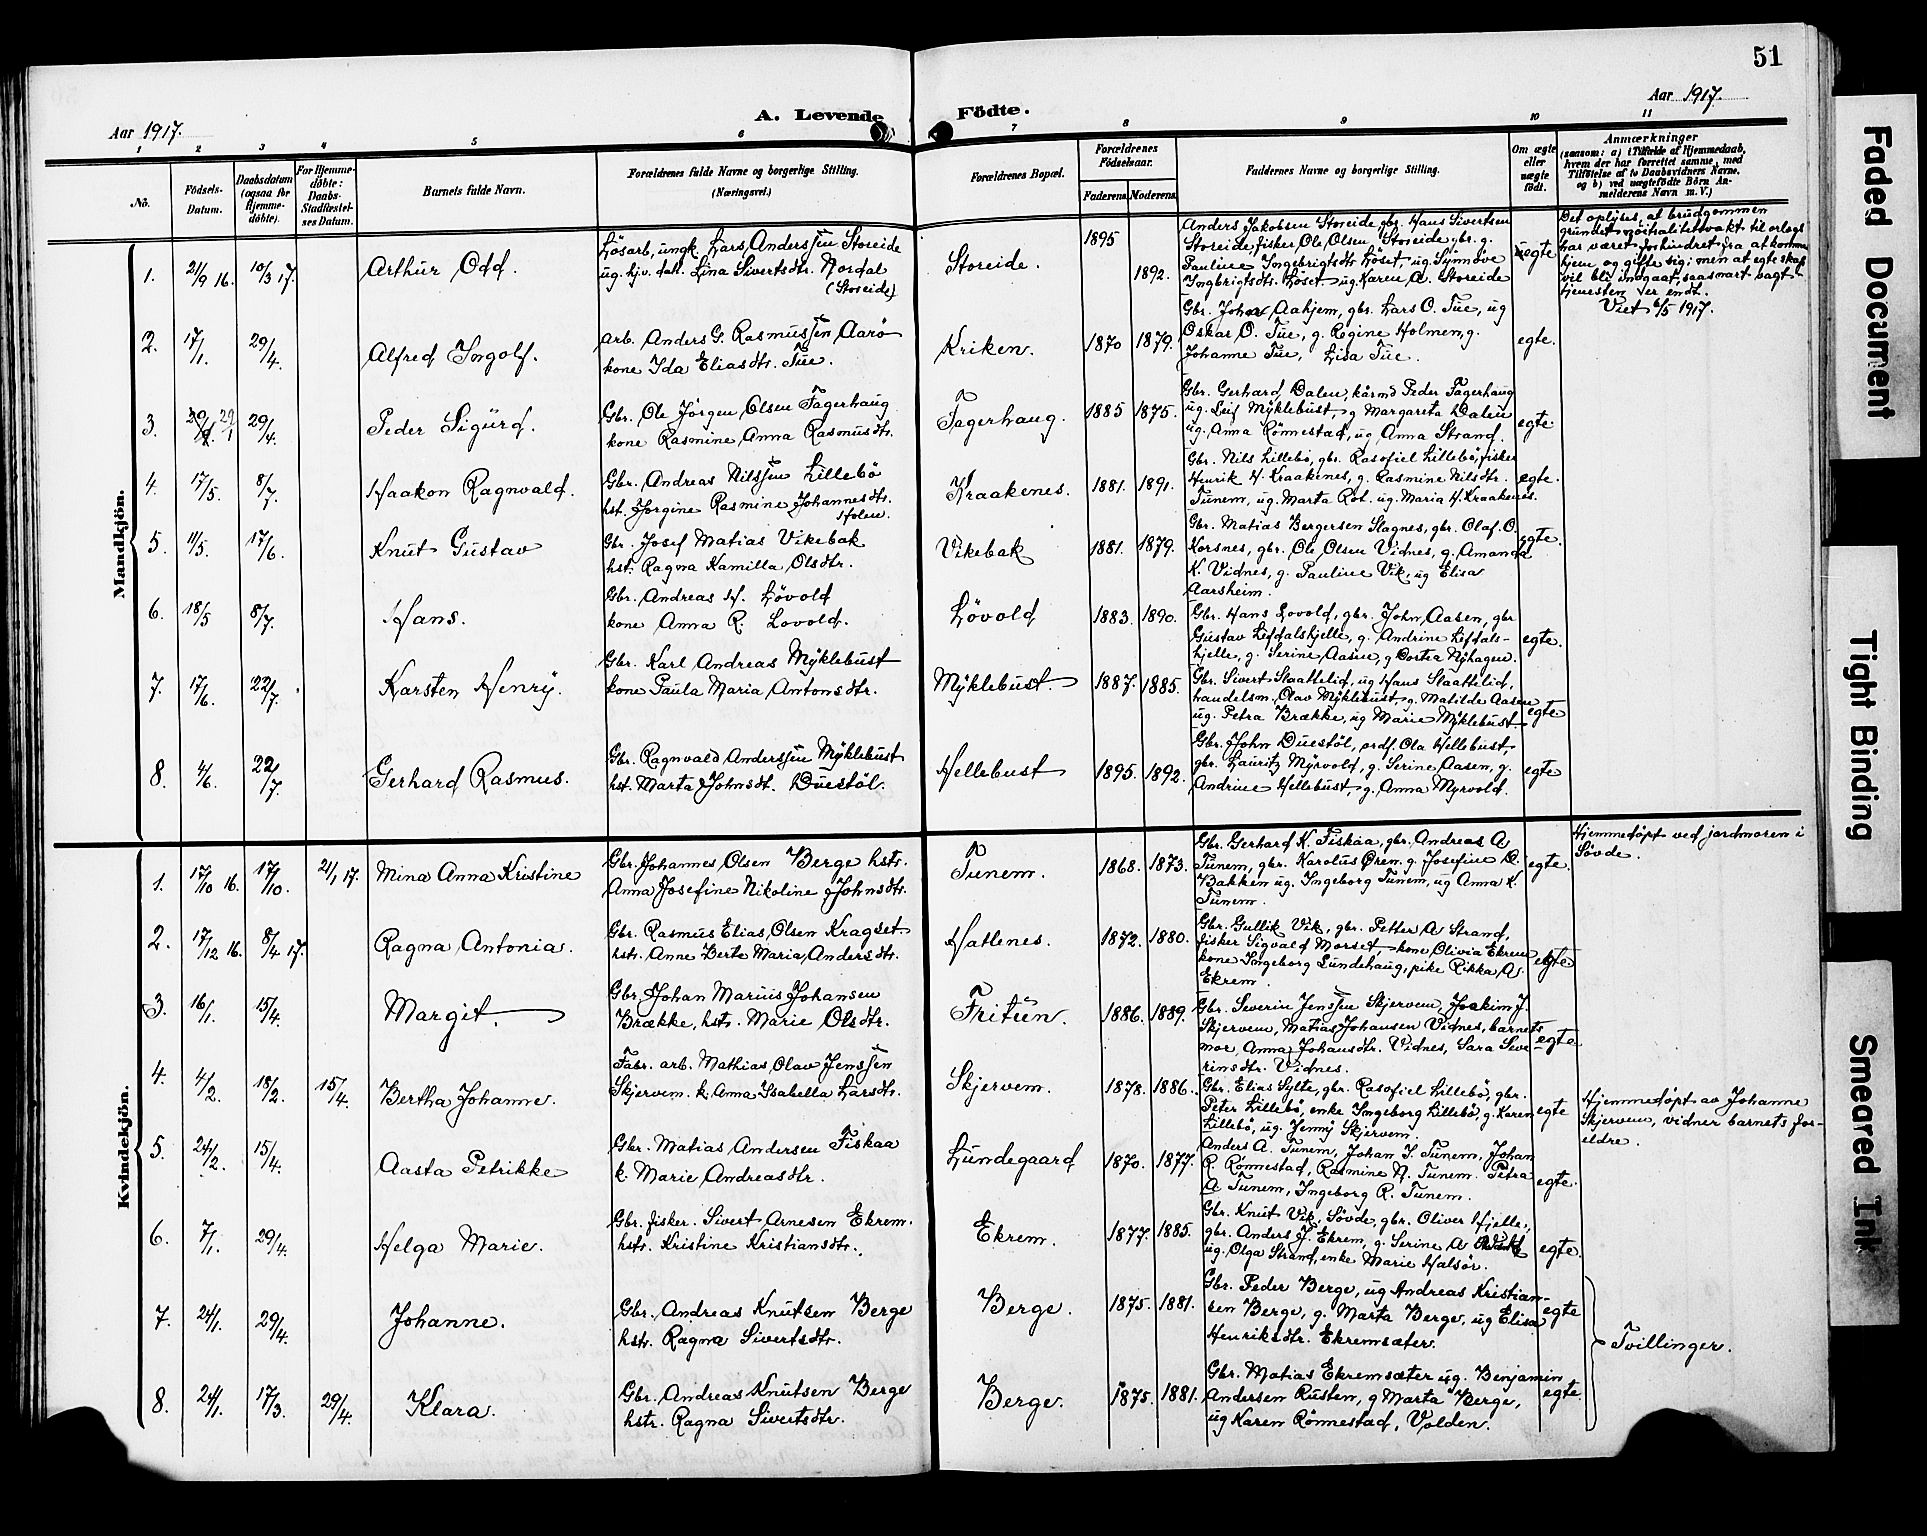 51
Aar 1917.
A. Levende Födte.
Aar 1917.
1 2 3 4 5 6 7 8 9 10 11
No.
Födsels-Datum.
Daabsdatum (ogsaa for Hjemmedöbte).
For Hjemmedöbte: Daabs-Stadfæstelses Datum.
Barnets fulde Navn.
Forældrenes fulde Navne og borgerlige Stilling. (Næringsvei.)
Forældrenes Bopæl.
Forældrenes Födselsaar.
Faderens. Moderens.
Faddernes Navne og borgerlige Stilling.
Om ægte eller uægte födt.
Anmærkninger
(saasom: a) i Tilfælde af Hjemmedaab, hvem der har forrettet samme, med Tilföielse af to Daabsvidners Navne, og b) ved uægtefödte Börn Anmelderens Navn m. V.)
Mandkjön.
1. 21/9 16. 10/3 17. Arthur Odd.
Lösarb, ungk. Lars Anderssen Storeide
ug. hjv. dat. Lina Sivertsdtr. Nordal
(Storeide)
Storeide. 1895 1892.
Anders Jakobsen Storeide gbr. Hans Sivertsen
Storeide, fisker Ole Olsen Storeide, gbr. g.
Pauline Ingebrigtsdtr. Löset, ug. Synnöve
Ingbrigtsdtr. Löset. ug. Karen A. Storeide
uegte
Det oplyses, at brudgommen
grundet nöitralitetsvakt til orlogs
har været forhindret fra at komme
hjem og gifte sig; men at egteskap
vil bli indgaat, saasnart vagt-
tjenesten er endt.
Viet 6/5 1917.
2. 17/1. 29/4. Alfred Ingolf.
arb. Anders G. Rasmussen Aarö
kone Ida Eliasdtr. Tue.
Kriken. 1870 1879.
Gbr. Johan Aahjem, gbr. Lars O. Tue, ug
Oskar O. Tue, g. Regine Holmen, g.
Johanne Tue, Lisa Tue.
egte.
3. 29/1 29/4. Peder Sigurd.
Gbr. Ole Jörgen Olsen Fagerhaug
kone Rasmine Anna Rasmusdtr.
Fagerhaug. 1885 1875.
Gbr. Gerhard Dalen, kårmd Peder Fagerhaug
ug. Leif Myklebust, g Margareta Dalen
ug. Anna Rönnestad, ug Anna Strand.
egte.
4. 17/5. 8/7. Haakon Ragnvald.
Gbr. Andreas Nilssen Lillebö
hst. Jorgine Rasmine Johannesdtr.
Holen.
Kraakenes. 1881. 1891.
Gbr. Nils Lillebö, gbr. Rasofiel Lillebö, fisker
Henrik H. Kraakenes, g. Rasmine Nilsdtr.
Tunem, ug. Marta Rot. ug. Maria H. Kraakenes.
egte.
5. 11/5. 17/6. Knut Gustav
Gbr. Josef Matias Vikebak
hst. Ragna Kamilla Olsdtr.
Vikebak 1881. 1879.
Gbr. Matias Bergersen Slagnes, gbr. Olaf O.
Korsnes, gbr. Ole Olsen Vidnes, g. Amanda
K. Vidnes, g. Pauline Vik, ug Elisa
Aarsheim.
egte.
6. 18/5 8/7. Hans.
Gbr. Andreas H. Lövold
kone Anna R. Lovold.
Lövold 1883. 1890.
Gbr. Hans Lovold, gbr. John Aasen, gbr
Gustav Lefdalshjelle, g. Andrine Lefdals-
hjelle, g. Serine Aasen, g Dortea Nyhagen.
egte.
7. 17/6. 22/7. Karsten Henry.
Gbr. Karl Andreas Myklebust
kone Paula Maria Antonsdtr.
Myklebust. 1887. 1885.
Gbr. Sivert Slaattelid, ug Hans Slaattelid,
handelsm. Olav Myklebust, g. Matilde Aasen
ug. Petra Brække, ug Marie Myklebust
egte
8. 4/6. 22/7. Gerhard Rasmus.
Gbr. Ragnvald Anderssen Myklebust
hst. Marta Johnsdt. Duestöl.
Hellebust 1895. 1892.
Gbr. John Duestöl, ordf. Ola Hellebust,
gbr. Lauritz Myrvold, g. Serine Aasen, g.
Andrine Hellebust, g. Anna Myrvold.
egte
Kvindekjön.
1. 17/10 16. 17/10. 21/1 17. Mina Anna Kristine
Gbr. Johannes Olsen Berge hstr.
Anna Josefine Nikoline Johnsdtr.
Tunem. 1868. 1873.
Gbr. Gerhard K. Fiskaa, gbr. Andreas A
Tunem, gbr. Karolus Ören, g. Josefine O.
Bakken ug. Ingeborg Tunem, ug Anna K.
Tunem.
egte.
Hjemmedöpt ved jordmoren i
Sövde.
2. 17/12 16. 8/4 17. Ragna Antonia.
Gbr. Rasmus Elias Olsen Kragset
hstr. Anne Berte Maria Andersdtr.
Hatlenes. 1872. 1880.
Gbr. Gullik Vik, gbr. Petter A Strand,
fisker Sigvald Morset, kone Olivia Ekrem
kone Ingeborg Lundehaug, pike Rikka A.
Ekrem.
egte
3. 16/1. 15/4. Margit.
Gbr. Johan Marius Johansen
Brække, hstr. Marie Olsdtr.
Fritun. 1886. 1889.
Gbr. Severin Jenssen Skjervem, Joakim J.
Skjervem, Matias Johansen Vidnes, barnets
mor, Anna Johansdtr. Vidnes, Sara Seve-
rinsdtr. Vidnes.
egte
4. 4/2. 18/2. 15/4. Bertha Johanne.
Fabr. arb. Mathias Olav Jenssen
Skjervem. k. Anna Isabella Larsdtr.
Skjervem. 1878. 1886.
Gbr. Elias Sylte, gbr. Rasofiel Lillebö, gbr.
Peter Lillebö, enke Ingeborg Lillebö, g. Karen
Lillebö, ug. Jenny Skjervem.
egte
Hjemmedöpt av Johanne
Skjervem, vidner barnets for-
eldre.
5. 24/2. 15/4. Aasta Petrikke
Gbr. Matias Andersen Fiskaa
k. Marie Andreasdtr.
Lundegaard 1870. 1877.
Anders A. Tunem, Johan I. Tunem, Johan
R. Rönnestad, Rasmine N. Tunem. Petra
A Tunem, Ingeborg R. Tunem.
egte.
6. 7/1. 29/4. Helga Marie.
Gbr. fisker. Sivert Arnesen Ekrem.
hstr. Kristine Kristiansdtr.
Ekrem. 1877. 1885.
Gbr. Knut Vik, Sövde, gbr. Oliver Hjelle,
gbr. Anders J. Ekrem, g. Serine A
ug. Olga Strand, enke Marie Halsör.
egte.
7. 24/1. 29/4. Johanne.
Gbr. Andreas Knutsen Berge
hstr. Ragna Sivertsdtr.
Berge. 1875. 1881.
Gbr. Peder Berge, ug Andreas Kristian-
sen Berge, g. Marta Berge, ug Elisa
Henriksdtr. Ekremsæter.
egte
Tvillinger.
8. 24/1. 17/3. 29/4. Klara.
Gbr. Andreas Knutsen Berge
hstr. Ragna Sivertsdtr.
Berge. 1875. 1881.
Gbr. Matias Ekremsæter ug. Benjamin
Andersen Rusten, g Marta Berge,
ug Karen Rönnestad, Volden.
egte.
Faded Document
Tight Binding
Smeared Ink